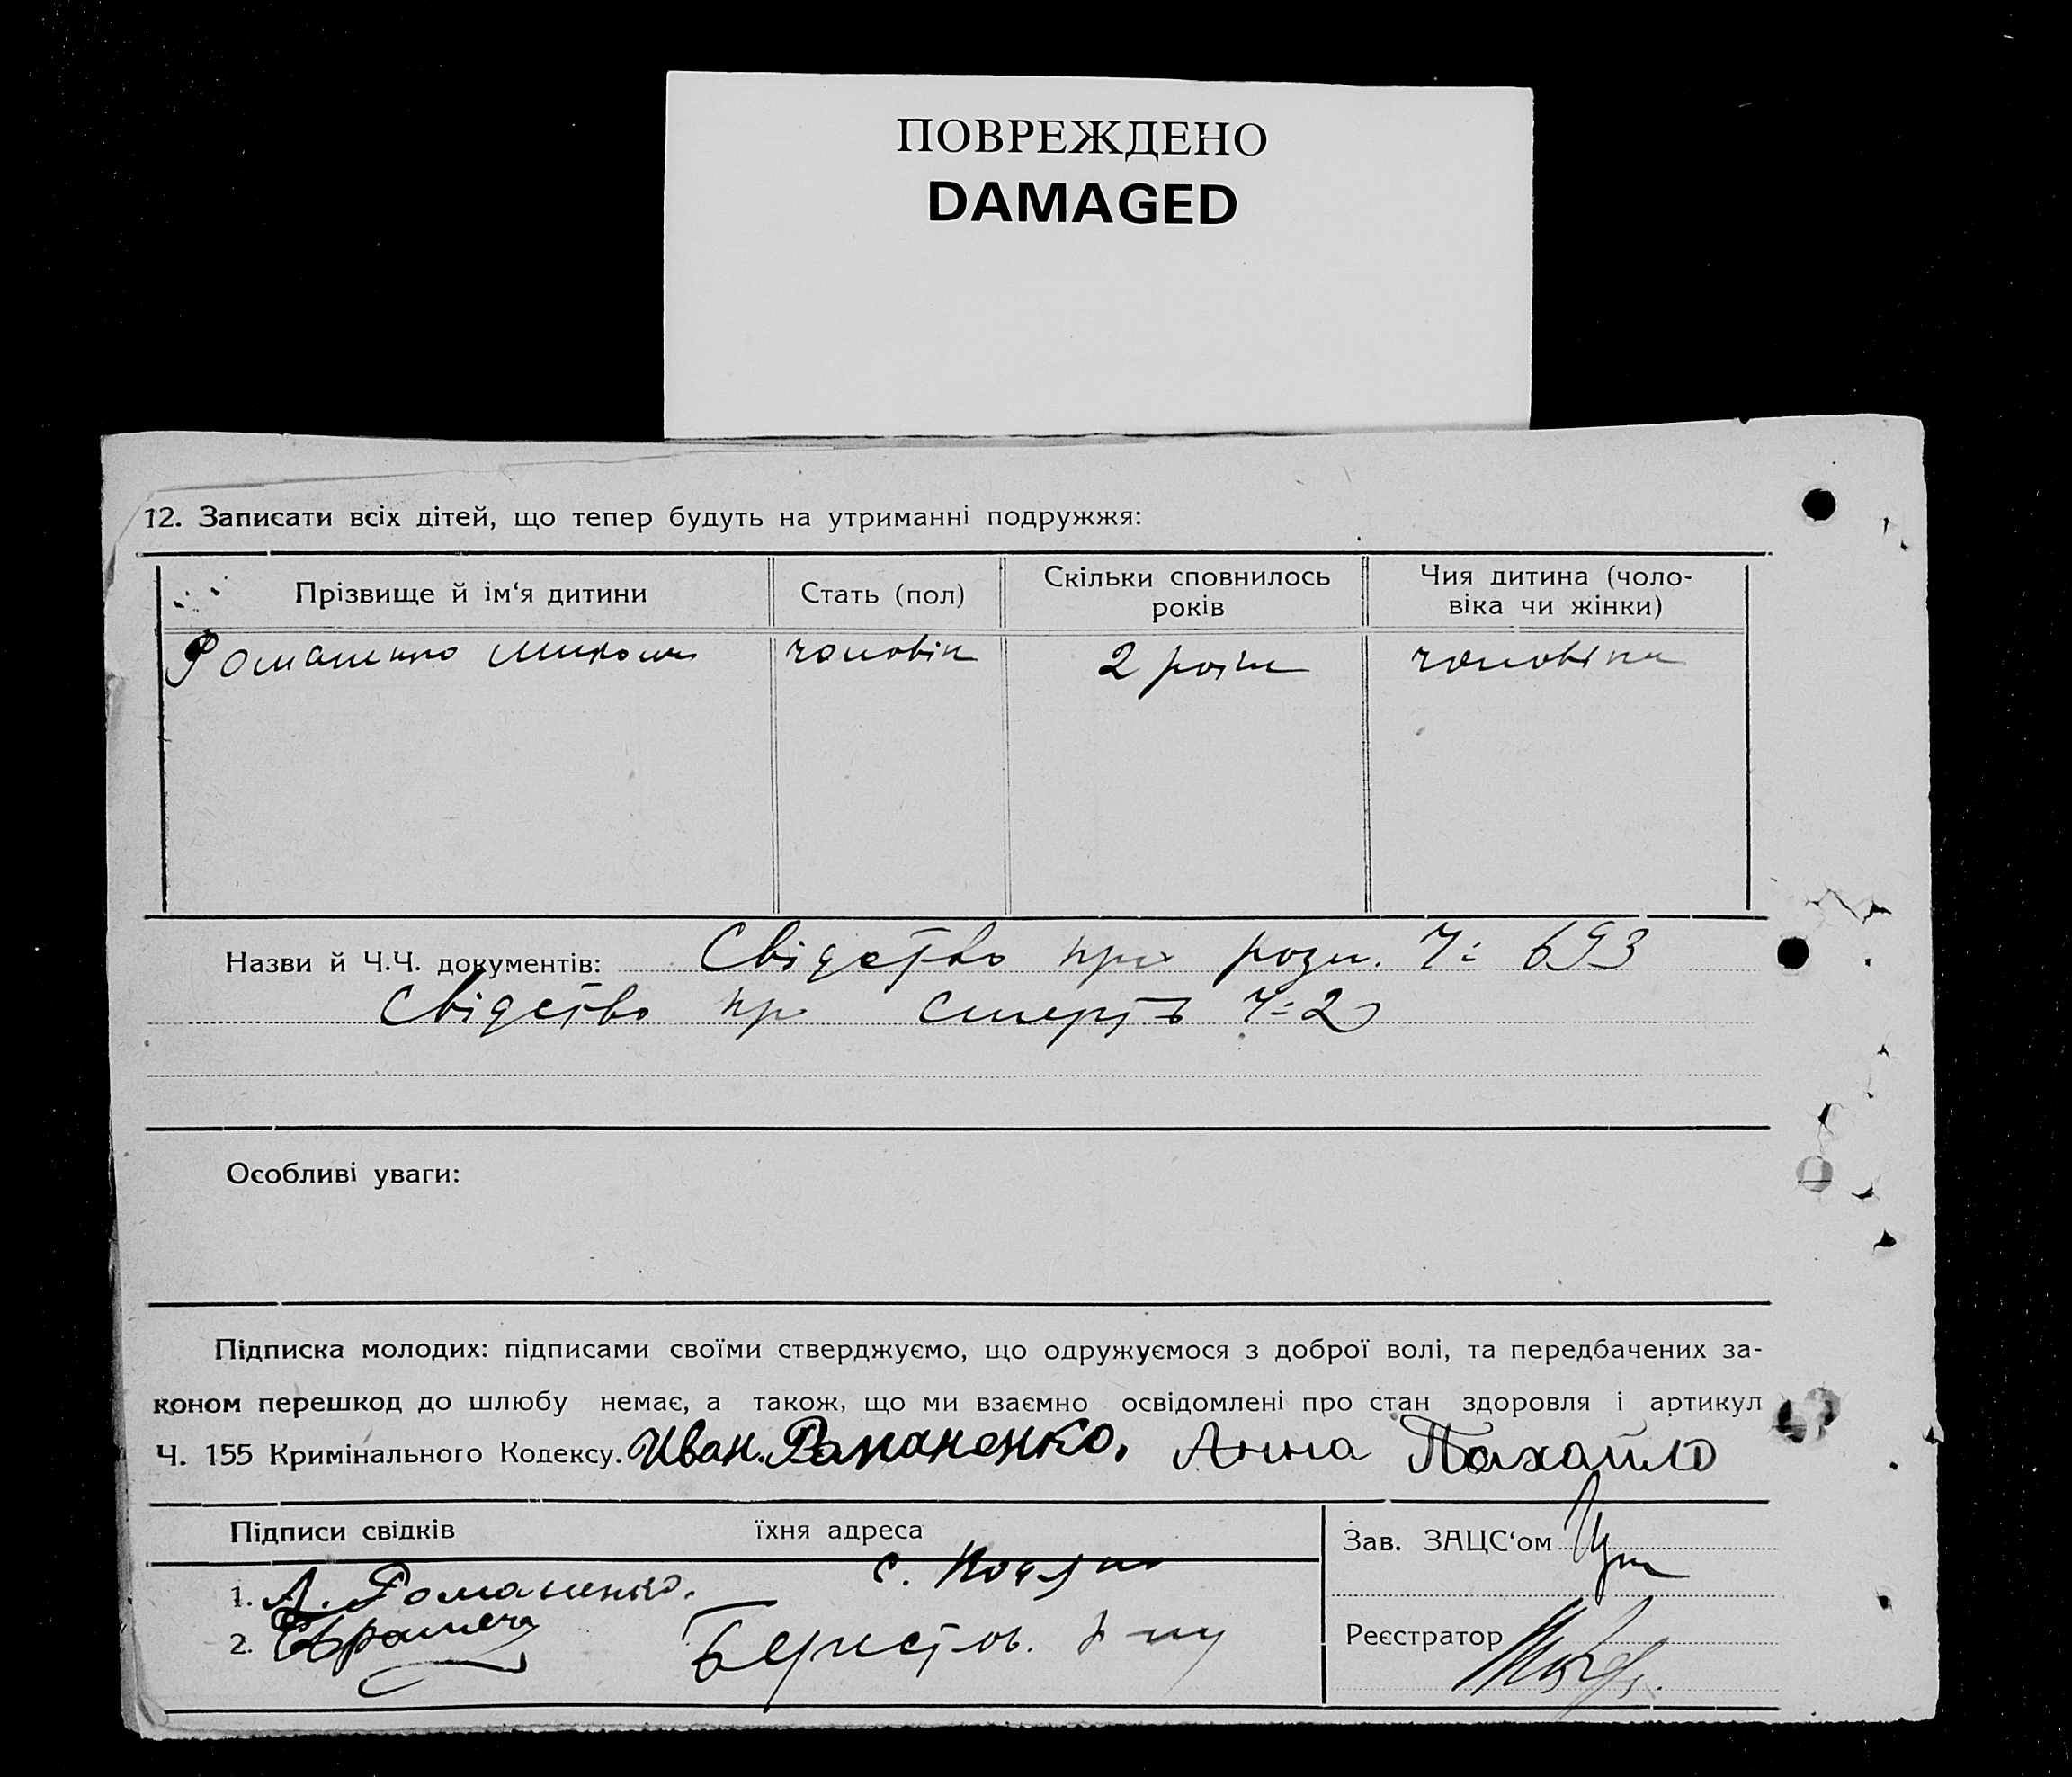 ПОВРЕЖДЕНО
DAMAGED
12. Записати всіх дітей, що тепер будуть на утриманні подружжя:
Прізвище й ім‘я дитини
Стать (пол)
Скільки сповнилось років
Чия дитина (чоло-
віка чи жінки)
Романенко Микола
чоловік
2 роки
чоловіка
Назви й Ч.Ч. документів: Свідоство про розл. Ч: 693
Свідоство про смерть Ч: 2
Особливі уваги:
Підписка молодих: підписами своїми стверджуємо, що одружуємося з доброї волі, та передбачених за-
коном перешкод до шлюбу немає, а також, що ми взаємно освідомлені про стан здоровля і артикул
Ч. 155 Кримінального Кодексу. Иван. Романенко. Анна Пахайло
Підписи свідків
їхня адреса
Зав. ЗАЦС‘ом
1. А. Романенко. с.
2. Берестов. р-ну
Реєстратор